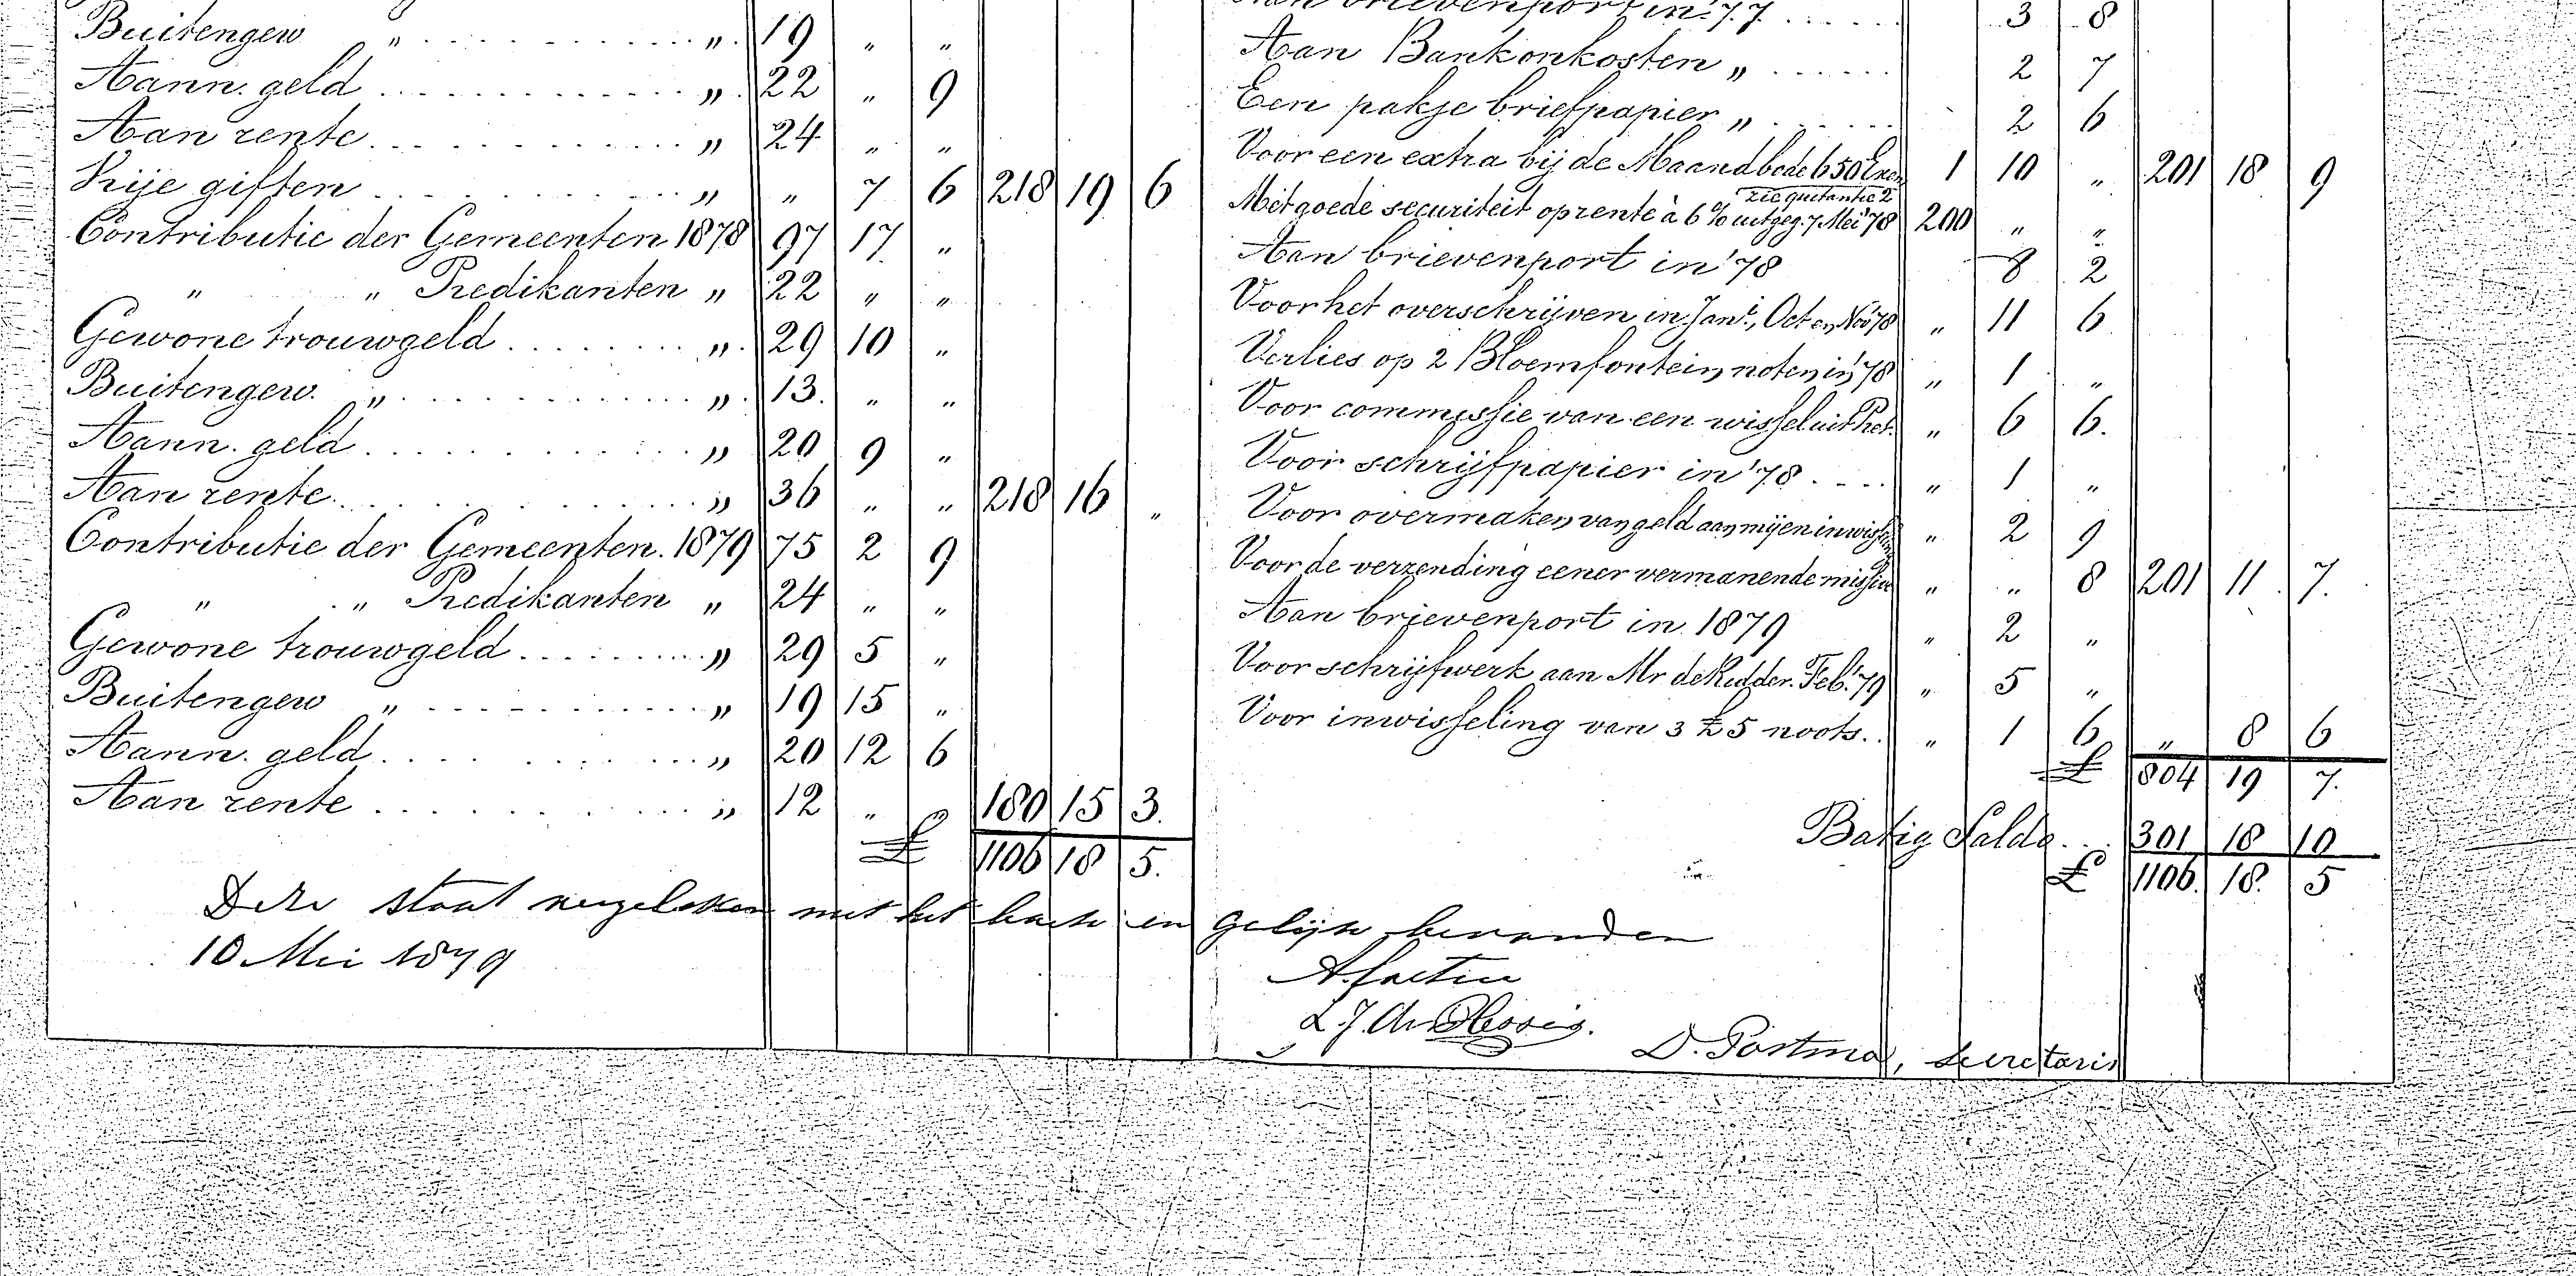 Buitengew " . . . . . . . . . . . . " 19 " "
Aann. geld . . . . . . . . . . . . " 22 " 9
Aan rente . . . . . . . . . . . . " 24 " "
Vrije giften . . . . . . . . . . . . " " 7 6 218 19 6
Contributie der Gemeenten 1878 97 17 "
" " Predikanten " 22 " "
Gewone trouwgeld . . . . . . . . " 29 10 "
Buitengew. " . . . . . . . . . . . . " 13. " "
Aann. geld . . . . . . . . . . . . " 20 9 "
Aan rente . . . . . . . . . . . . " 36 " " 218 16 "
Contributie der Gemeenten. 1879 75 2 9
" " Predikanten " 24 " "
Gewone trouwgeld . . . . . . . . " 29 5 "
Buitengew " . . . . . . . . . . . . " 19 15 "
Aann. geld . . . . . . . . . . . . " 20 12 6
Aan rente . . . . . . . . . . . . " 12 " " 180 15 3.
£ 1106 18 5.
Aan brievenport in '77 . . . . . . 3 8
Aan Bankonkosten " . . . . . . 2 7
Een pakje briefpapier " . . . . . . 2 6
Voor een extra bij de Maandbode 650 Exem 1 10 " 201 18 9
zie quitantie 2
Met goede securiteit op rente à 6 % uitgeg. 7 Mei '78 200 " "
Aan brievenport in '78 8 2
Voor het overschrijven in Jan., Oct en Nov '78 " 11 6
Verlies op 2 Bloemfontein noten in '78 " 1 "
Voor commissie van een wissel uit " 6 6.
Voor schrijfpapier in '78 . . . . " 1 "
Voor overmaken van geld aan mij en inwisseling " 2 9
Voor de verzending eener vermanende missive " " 8 201 11 7.
Aan brievenport in 1879 " 2 "
Voor schrijfwerk aan Mr de Ridder. Feb. '79 " 5 "
Voor inwisseling van 3 £5 noots. . " 1 6 " 8 6
£ 804 19 7.
Batig Saldo . . . 301 18 10
£ 1106. 18. 5
Deze staat vergeleken met het boek en gelijk bevonden
10 Mei 1879
L. J. du Plessis.
D. Postma, secretaris